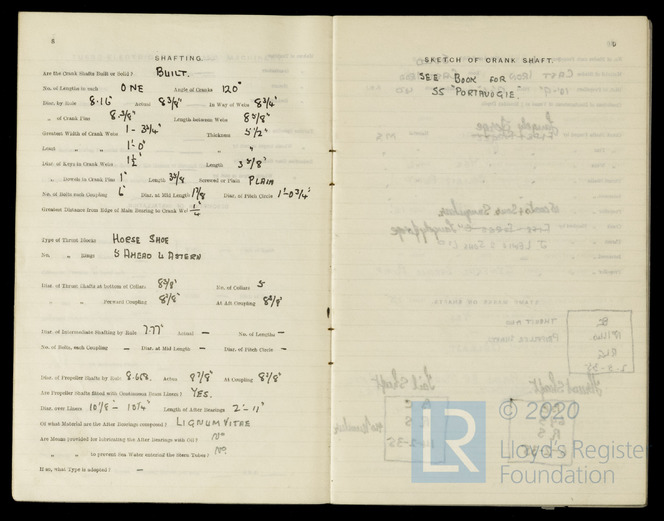 8
SHAFTING.
Are the Crank Shafts Built or Solid? BUILT.
No. of Lengths in each ONE Angle of Cranks 120°
Diar. by Rule 8.16" Actual 8 3/8" In Way of Webs 8 3/4"
„ of Crank Pins 8 3/8" Length between Webs 8 5/8"
Greatest Width of Crank Webs 1 - 3 3/4" Thickness 5 1/2"
Least „ „ 1'-0" „ "
Diar. of Keys in Crank Webs 1 1/2" Length 3 5/8"
„ Dowels in Crank Pins 1" Length 3 3/8 Screwed or Plain PLAIN
No. of Bolts each Coupling 6 Diar. at Mid Length 1 7/8 Diar. of Pitch Circle 1'-0 3/4"
Greatest Distance from Edge of Main Bearing to Crank Web 1/4"
Type of Thrust Blocks HORSE SHOE
No. „ Rings 5 AHEAD 4 ASTERN
Diar. of Thrust Shafts at bottom of Collars 8 3/8" No. of Collars 5
„ „ Forward Coupling 8 3/8" At Aft Coupling 8 3/8"
Diar. of Intermediate Shafting by Rule 7.77" Actual — No. of Lengths —
No. of Bolts, each Coupling — Diar. at Mid Length — Diar. of Pitch Circle —
Diar. of Propeller Shafts by Rule 8.658. Actual 8 7/8" At Coupling 8 3/8"
Are Propeller Shafts fitted with Continuous Brass Liners? YES.
Diar. over Liners 10 1/8 - 10 1/4 Length of After Bearings 2'-11"
Of what Material are the After Bearings composed? LIGNUMVITAE
Are Means provided for lubricating the After Bearings with Oil? No
„ „ to prevent Sea Water entering the Stern Tubes? No.
If so, what Type is adopted? —
SKETCH OF CRANK SHAFT.
SEE BOOK FOR
SS "PORTAVOGIE.
LR
© 2020
Lloyd's Register
Foundation